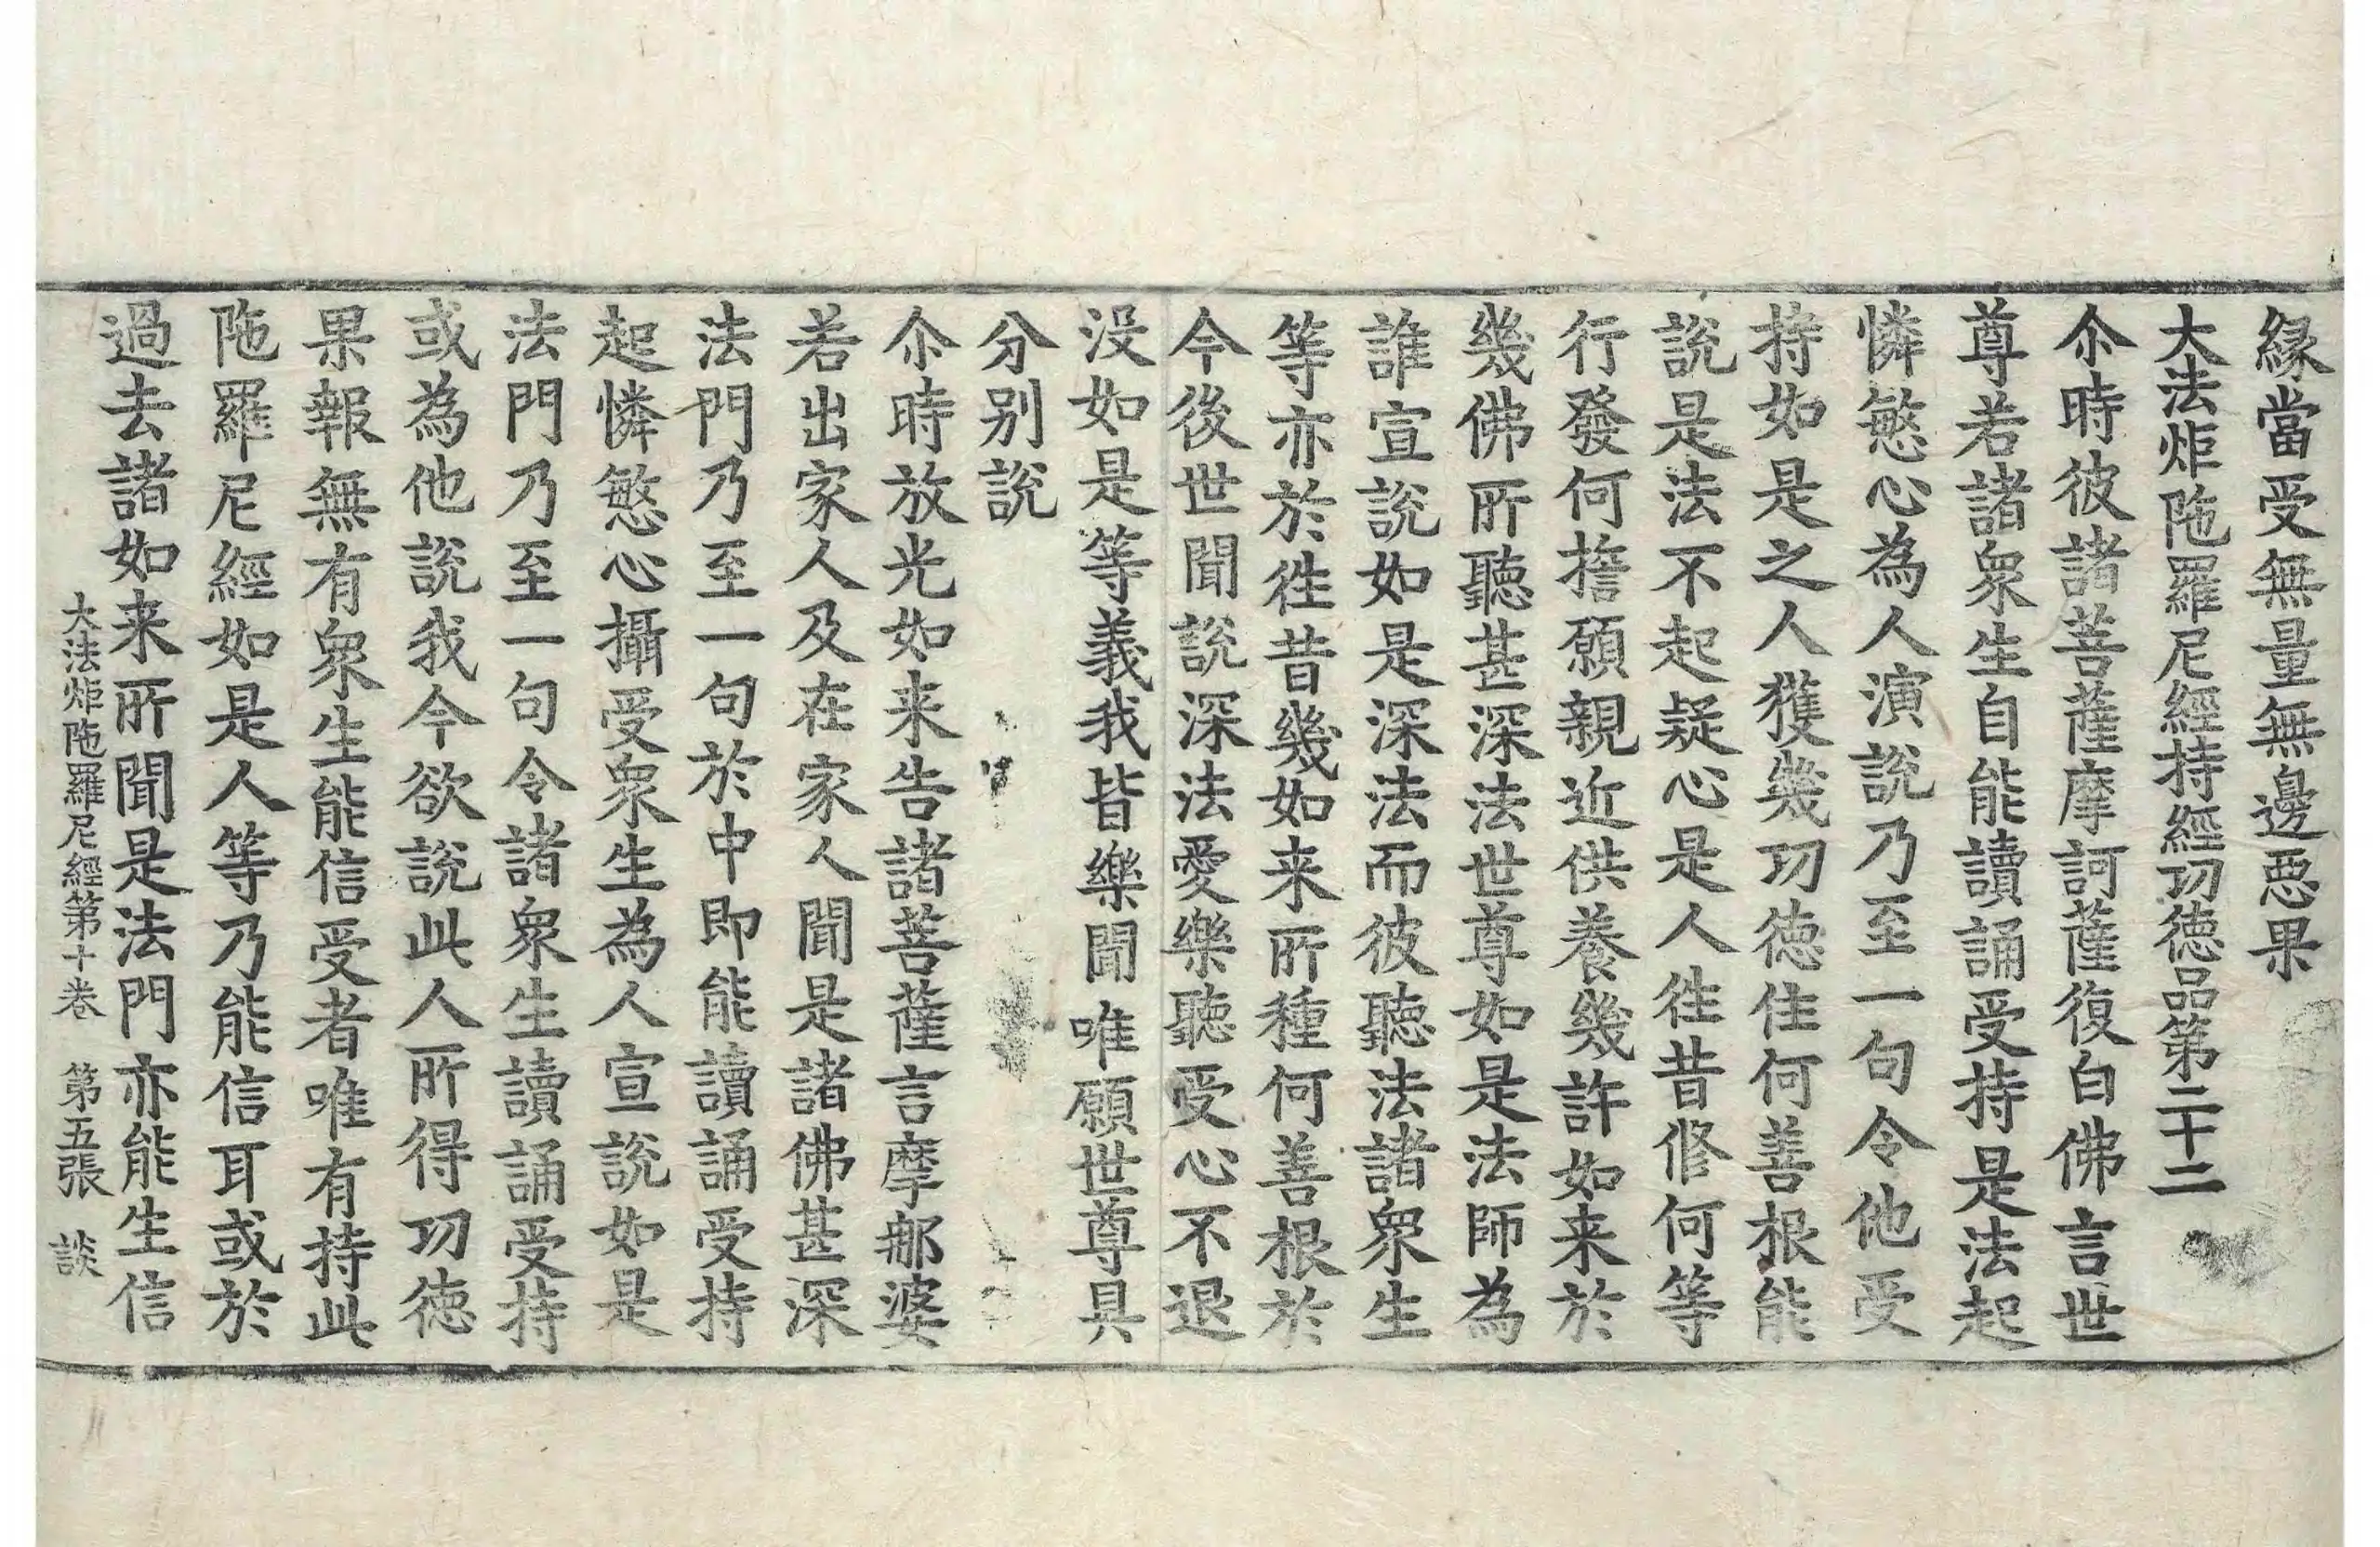 緣當受無量無邊惡果
大法炬陁羅尼經持經功德品第二十二
尒時彼諸菩薩摩訶薩復白佛言世
尊若諸衆生自能讀誦受持是法起
憐愍心為人演說乃至一句令他受
持如是之人獲幾功德住何善根能
說是法不起疑心是人徃昔修何等
行發何擔願親近供養幾許如来於
幾佛所聽甚深法世尊如是法師為
誰宣說如是深法而彼聽法諸衆生
等亦於徃昔幾如来所種何善根於
今後世聞說深法愛樂聽受心不退
没如是等義我皆樂聞唯願世尊具
分別說
尒時放光如来告諸菩薩言摩郍婆
若出家人及在家人聞是諸佛甚深
法門乃至一句於中即能讀誦受持
起憐愍心攝受衆生為人宣說如是
法門乃至一句令諸衆生讀誦受持
或為他說我今欲說此人所得功德
果報無有衆生能信受者唯有持此
陁羅尼經如是人等乃能信耳或於
過去諸如来所聞是法門亦能生信
大法炬陁羅尼經第十卷 第五張 談